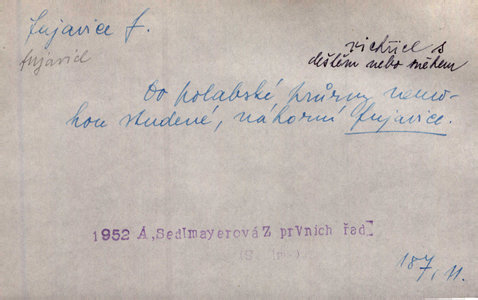 fujavice f.
fujavice
vichřice s
deštěm nebo sněhem
Do polabské průrvy nemo-
hou studené, náhorní fujavice.
1952 A, Sedlmayerová Z prvních řad
187, 11.